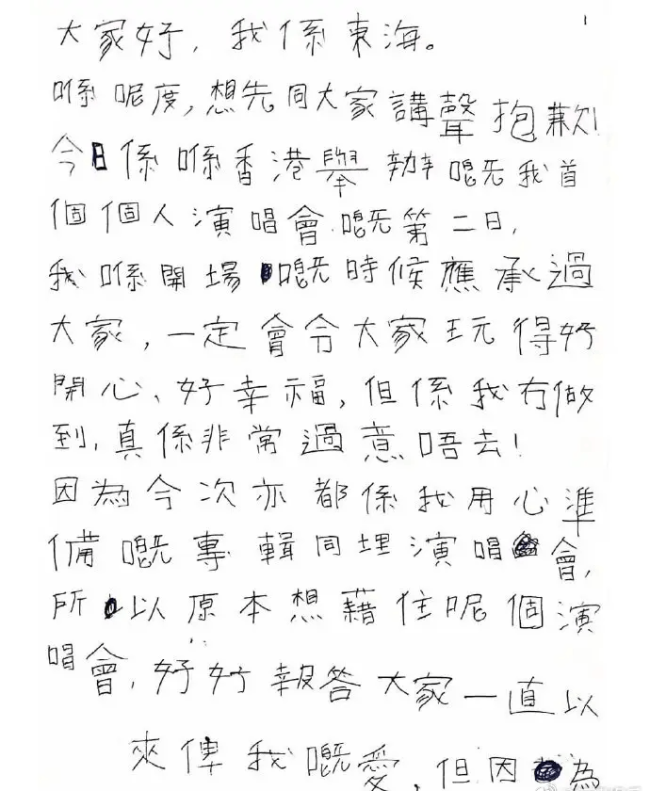 1
大家好, 我係東海。
喺呢度, 想先同大家講聲抱歉!
今日係喺香港舉辦嘅我首
個個人演唱會嘅第二日,
我喺開場嘅時候應承過
大家, 一定會令大家玩得好
開心、好幸福, 但係我冇做
到, 真係非常過意唔去!
因為今次亦都係我用心準
備嘅專輯同埋演唱會,
所以原本想藉住呢個演
唱會, 好好報答大家一直以
來俾我嘅愛, 但因為